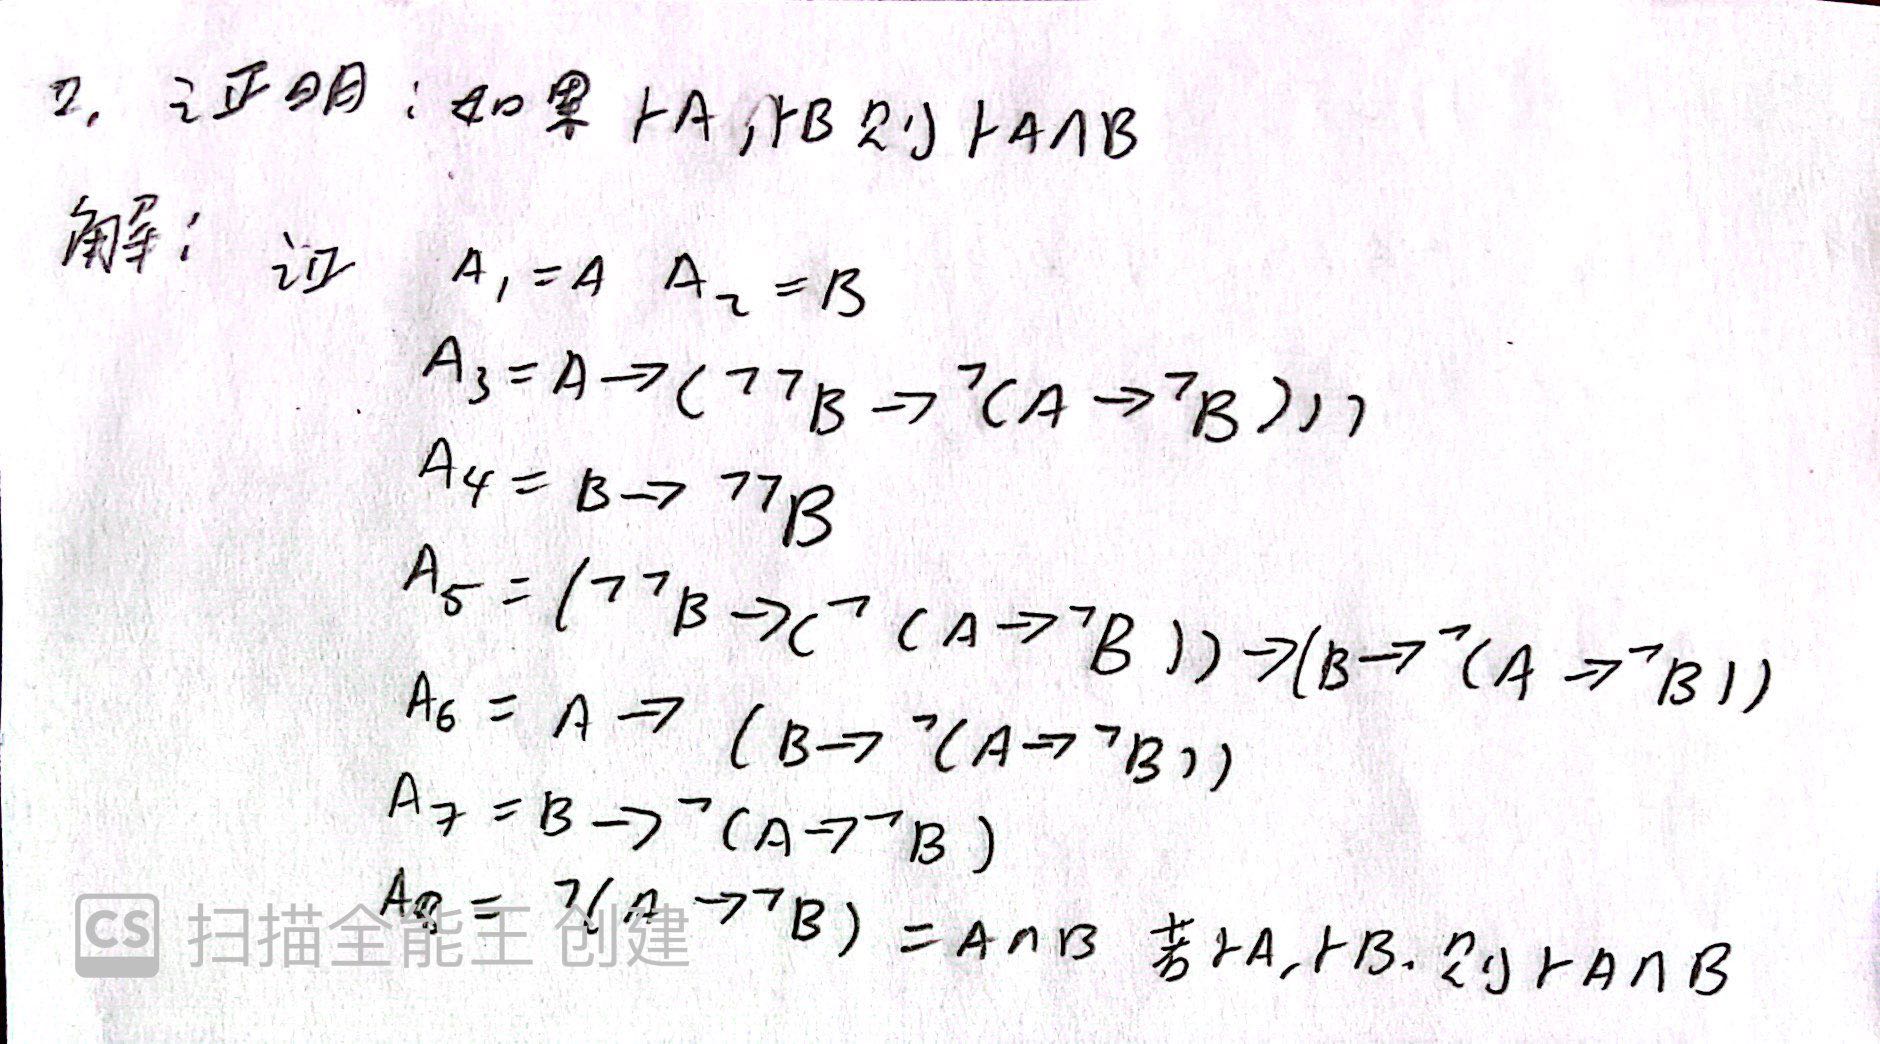 2. 证明:如果 ⊢A,⊢B 则 ⊢A∩B
解: 证 A₁=A A₂=B
A₃=A→(¬¬B→¬(A→¬B)))
A₄=B→¬¬B
A₅=(¬¬B→(¬(A→¬B))→(B→¬(A→¬B))
A₆=A→(B→¬(A→¬B))
A₇=B→¬(A→¬B)
A₈=¬(A→¬B)=A∩B 若⊢A,⊢B.则⊢A∩B
CS 扫描全能王 创建